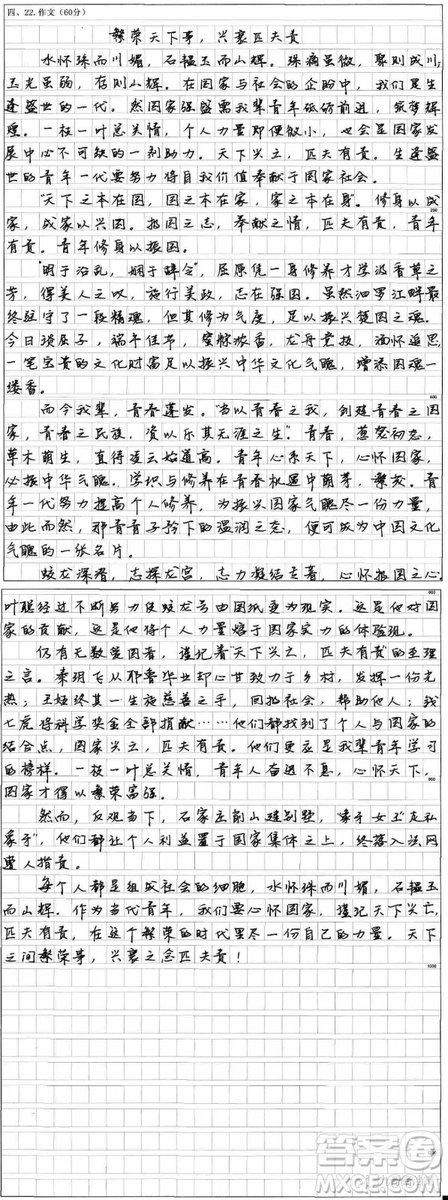 四、22.作文(60分)
繁荣天下事，兴衰匹夫责
水怀珠而川媚，石韫玉而山辉。珠滴虽微，聚则成川；
玉光虽弱，存则山辉。在国家与社会的企盼中，我们是生
逢盛世的一代。然国家强盛需我辈青年砥砺前进，筑梦辉
煌。一枝一叶总关情，个人力量即便微小，也会是国家发
展中必不可缺的一剂助力。天下兴亡，匹夫有责。生逢盛
世的青年一代要努力将自我价值奉献于国家社会。
"天下之本在国，国之本在家，家之本在身"。修身以成
家，成家以兴国。报国之志，奉献之情，匹夫有责，青年
有责。青年修身以振国。
"明于治乱，娴于辞令"，屈原凭一身修养才学汲香草之
芳，得美人之叹，施行美政，志在强国。虽然汨罗江畔最
终驻守了一段精魂，但其修为气度，足以振兴楚国之魂。
今日读屈子，端午佳节，粽香，龙舟竞技，缅怀追思
一笔宝贵的文化财富足以振兴中华文化气魄，增添国魂一
缕香。
而今我辈，青春蓬发。"当以青春之我，创建青春之国
家，青春之民族，资以乐其无涯之生"。青春，葱茏初态，
草木萌生，直待凌云始道高。青年心系天下，心怀国家，
必振中华气魄。学识与修养在青春机遇中萌芽，繁茂。青
年一代努力提高个人修养，为振兴国家气魄尽一份力量，
由此而然，那青青子衿下的温润之态，便可成为中国文化
气魄的一张名片。
蛟龙深潜，志撵龙宫，志力凝结走著，心怀报国之心
叶聪经过不断努力使蛟龙号由图纸变为现实。这是他对国
家的贡献，这是他将个人力量熔于国家实力的体验现。
仍有无数爱国者，谨记着"天下兴亡，匹夫有责"的至理
之言。秦玥飞从耶鲁毕业却心甘致力于乡村，发挥一份光
热；王娅终其一生施慈善之手，回报社会，帮助他人；钱
七虎将科学奖金全部捐献……他们都找到了个人与国家的
结合点，国家兴亡，匹夫有责。他们更应是我辈青年学习
的榜样。一枝一叶总关情，青年人奋进不息，心怀天下，
国家才得以繁荣富强。
然而，反观当下，石家主削山造别墅，"牵子女王"龙私
豢于"，他们都让个人利益置于国家集体之上，终落入法网
遭人指责。
每个人都是组成社会的细胞，水怀珠而川媚，石韫玉
而山辉。作为当代青年，我们要心怀国家，谨记天下兴亡，
匹夫有责，在这个繁荣的时代里尽一份自己的力量。天下
之间繁荣事，兴衰之念匹夫责！
200
400
600
800
1000
答案圈